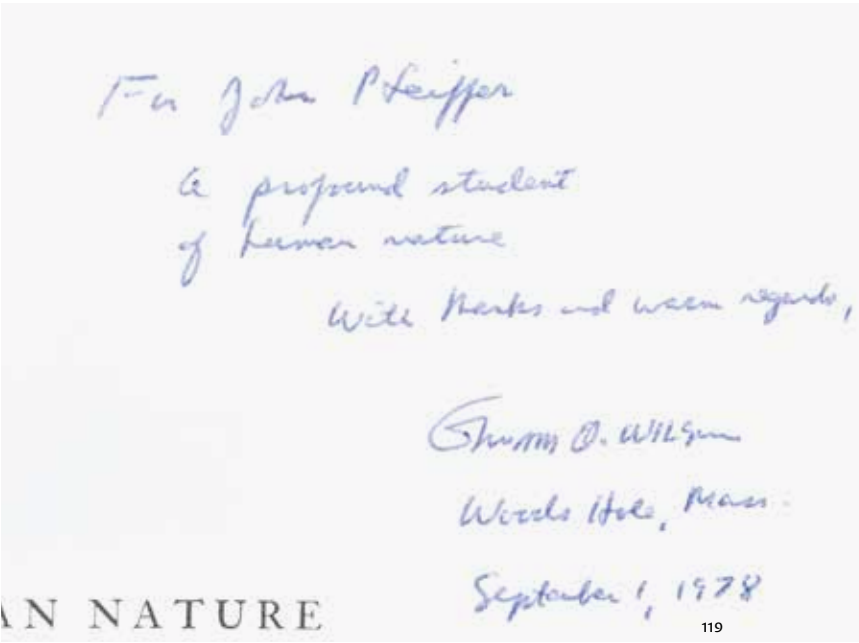 For John Pfeiffer
a profound student
of human nature
With thanks and warm regards,
Edward O. Wilson
Woods Hole, Mass.
September 1, 1978
AN NATURE
119